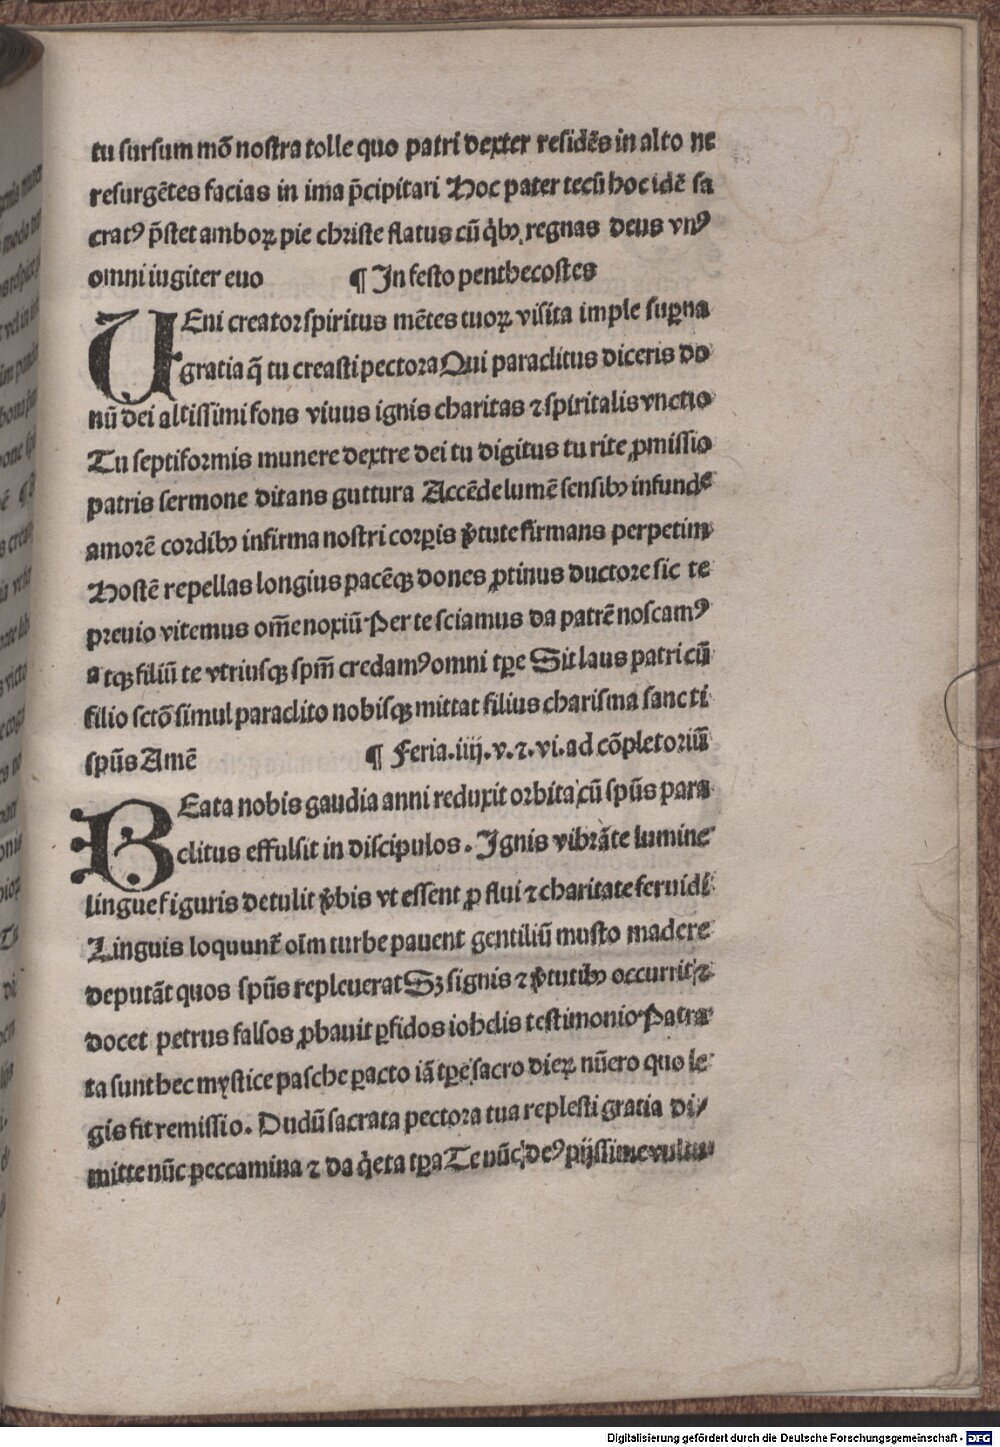 tu sursum mō nostra tolle quo patri dexter residēs in alto ne
resurgētes facias in ima p̄cipitari Hoc pater tecū hoc idē sa
cratꝰ p̄stet amboꝝ pie christe flatus cū qͥbꝫ regnas deus vnꝰ
omni iugiter euo ¶ In festo penthecostes
UEni creator spiritus mētes tuoꝝ visita imple suꝑna
gratia q̄ tu creasti pectora Qui paraclitus diceris do
nū dei altissimi fons viuus ignis charitas ⁊ spiritalis vnctio
Tu septiformis munere dextre dei tu digitus tu rite ꝓmissio
patris sermone ditans guttura Accēde lumē sensibꝫ infunde
amorē cordibꝫ infirma nostri corꝑis v̄tute firmans perpetim
Hostē repellas longius pacēqꝫ dones ꝓtinus ductore sic te
preuio vitemus om̄e noxiū Per te sciamus da patrē noscamꝰ
atqꝫ filiū te vtriusqꝫ spm̄ credamꝰ omni tꝑe Sit laus patri cū
filio sctō simul paraclito nobisqꝫ mittat filius charisma sancti
spūs Amē ¶ Feria.iiij.v.⁊.vi.ad cōpletoriū
BEata nobis gaudia anni reduxit orbita cū spūs para
clitus effulsit in discipulos. Ignis vibrāte lumine
lingue figuris detulit v̄bis vt essent ꝓflui ⁊ charitate feruidi
Linguis loquunt̄ oīm turbe pauent gentiliū musto madere
deputāt quos spūs repleuerat Sꝫ signis ⁊ v̄tutibꝫ occurrit ⁊
docet petrus falsos ꝓbauit ꝑfidos iohelis testimonio Patra
ta sunt hec mystice pasche ꝑacto iā tꝑe sacro dieꝝ nūero quo le
gis fit remissio. Dudū sacrata pectora tua replesti gratia di/
mitte nūc peccamina ⁊ da qͥeta tꝑa Te nūc deꝰ pijssime vultu
Digitalisierung gefördert durch die Deutsche Forschungsgemeinschaft - DFG